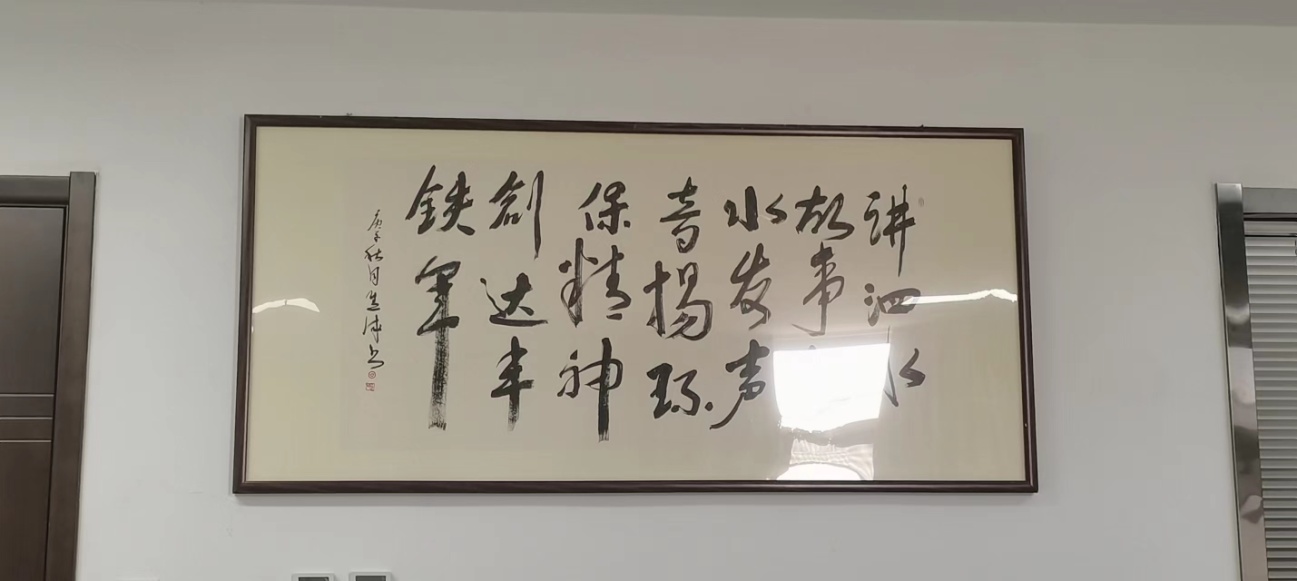 讲泗水
故事
水发声
音扬环
保精神
创达丰
铁军
庚子秋月 书